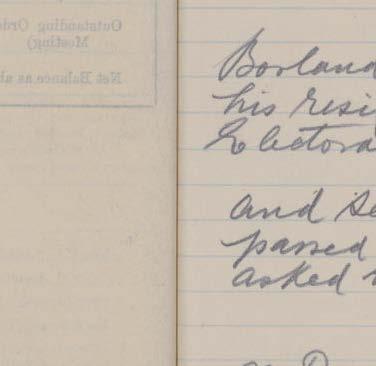 Outstanding Orde
Meeting)
Net Balance as ab
Borland
his resi
Electora
and se
passed
asked